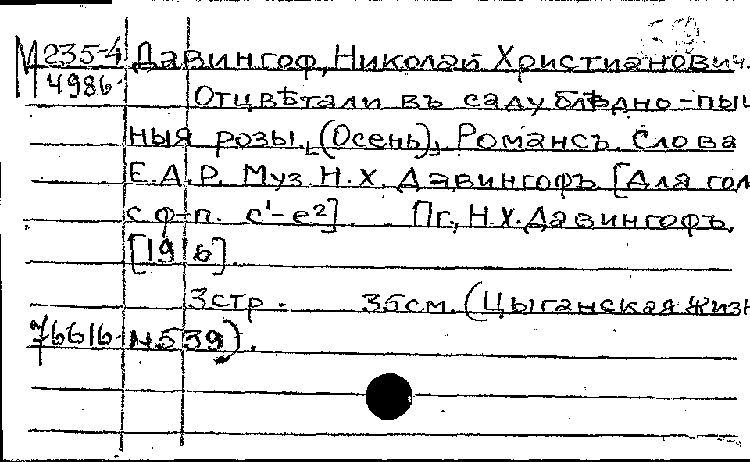 М 235-4 Давингоф, Николай Христианович.
4986
Отцвѣтали въ саду блѣдно-пыш
ныя розы. (Осень). Романсъ. Слова
Е.А.Р. Муз. Н.Х. Давингофъ. [Для гол
с ф-п. c¹-e²]. Пг., Н.Х. Давингофъ,
[1916].
3 стр. 35 см. (Цыганская жизн
76616 № 539).